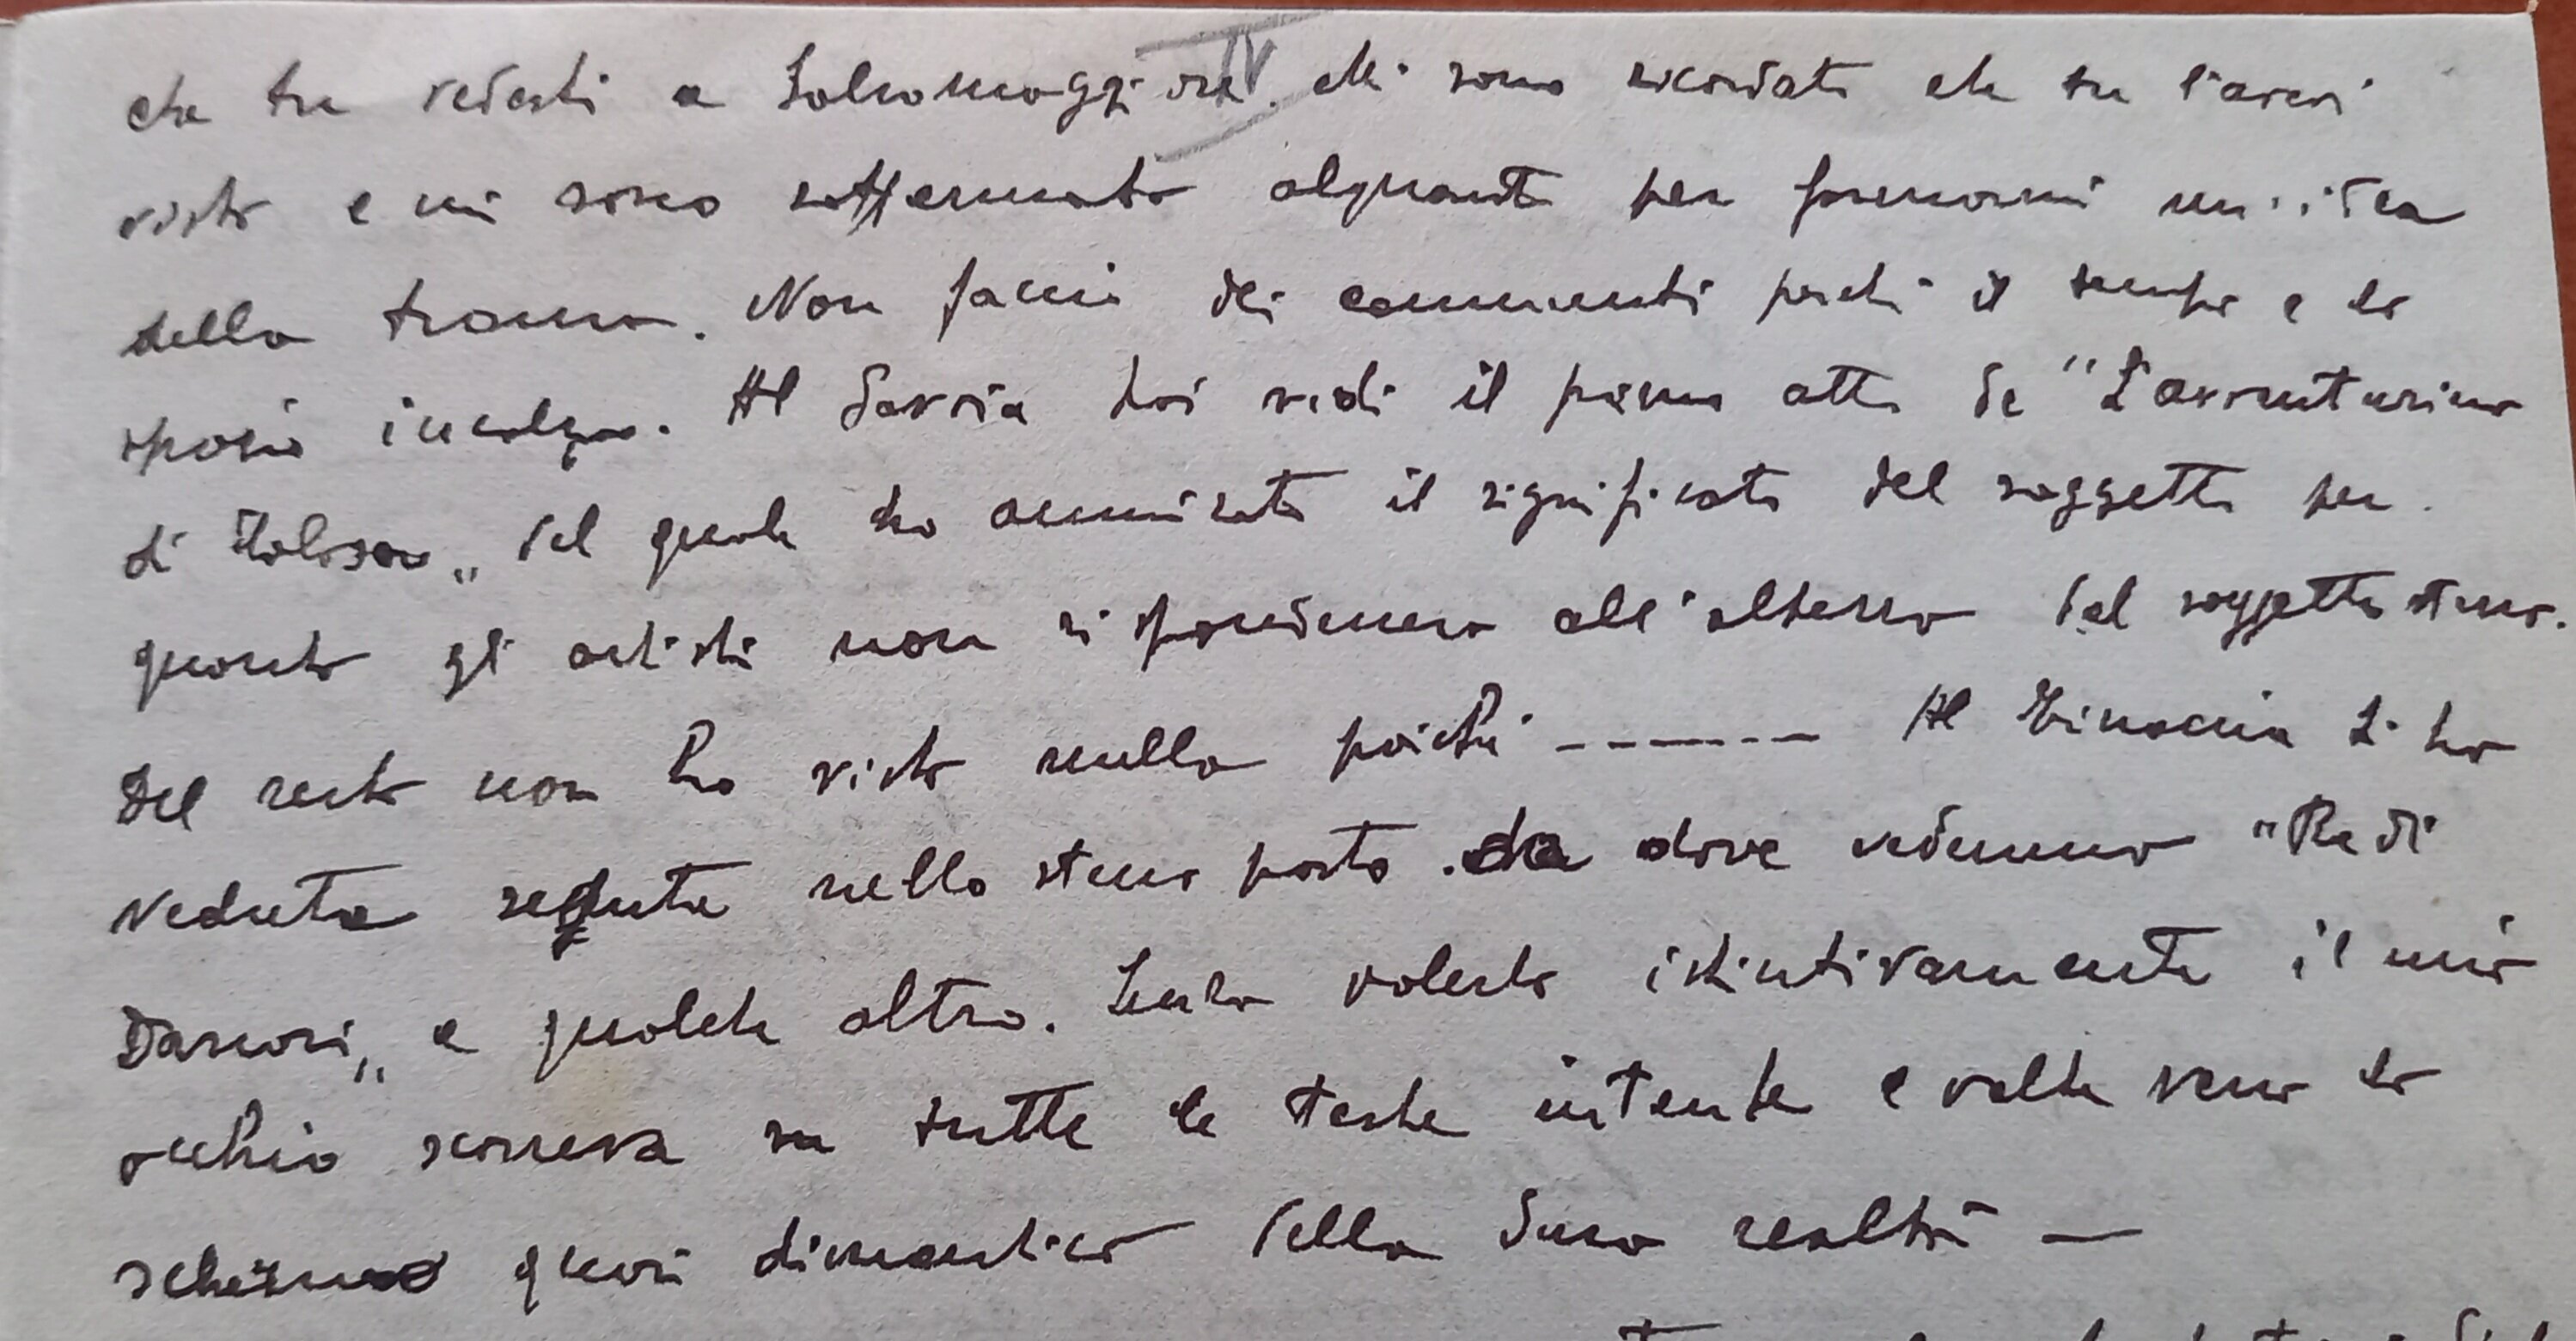 che tu vedesti a Salsomaggiore. Mi sono ricordato che tu l'avevi
visto e mi sono soffermato alquanto per formarmi un'idea
della trama. Non faccio dei commenti perché il tempo e lo
spazio incalza. Al Savoia poi vidi il primo atto de "L'avventuriero
di Tolosa„ del quale ho ammirato il significato del soggetto per
quanto gli artisti non rispondevano all'altezza del soggetto stesso.
Del resto non ho visto nulla poiché ------- Al ho
veduta seduta nello stesso posto da dove vedemmo "Re di
Denari„ e qualche altro. Senza volerlo istintivamente il mio
occhio scorreva su tutte le teste intente e volte verso lo
schermo quasi dimentico della dura realtà —